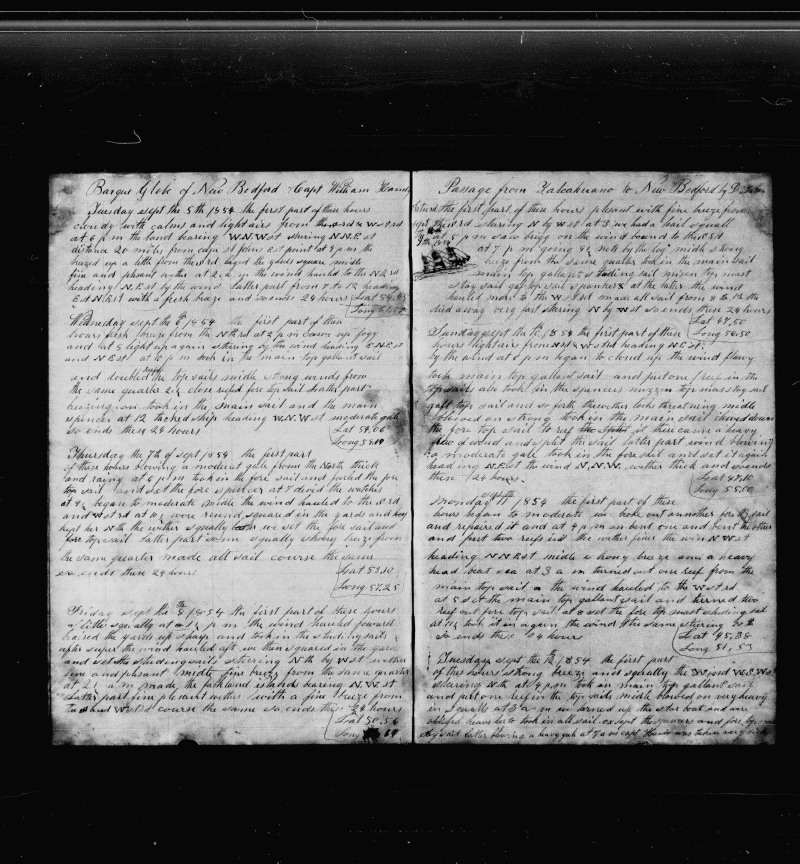 Barque Globe of New Bedford Capt William Handy
Tuesday sept the 5th 1854 the first part of these hours
cloudy with calms and light airs from the rd & Wstrd
at 6 p m the land bearing W.N.Wst stering N.N.Est
distance 20 miles from st point at 9 p m the
brezed up a little from the rd layed the yards square midle
fine and plesent wether at 2 a m the wind hauled to the N Erd
heading N.Est by the wind latter part from 7 to 12 heading
Est N.Est with a fresh breze and so ends 24 hours Lat 54.
Long
Wednesday sept the 6th 1854 the first part of these
hours fresh breeze from the Nthrd at 2 p m came up fogy
and at 5 light up again stering by the wind heading E.N.Est
and N.Est at 10 p m took in the main top gallant sail
and doubled reefed the top sails midle strong winds from
the same quarter 2½ close reefed fore top sail Latter part
took in the main sail and the main
spencer at 12 tacked ship heading W.N.Wst moderate gale
so ends these 24 hours Lat
Long
Thursday the 7th of Sept 1854 the first part
of these hours blowing a moderat gale from the North thick
and rainy at 6 p m took in the fore sail and furled the fore
top sail and set the fore spencer at 7 devid the watches
at 9½ began to moderate midle the wind hauled to the rd
and Wstrd at 10½ wore round squared in the yards and
kept her Nth the wether squally we set the fore sail and
fore top sail latter part some squally strong breze from
the same quarter made all sail course the same
so ends these 24 hours Lat 53.10
Long 57.25
Friday sept the 8th 1854 the first part of these hours
a little squally at 1½ p m the wind hauled forward
braced the yards up sharp and took in the studing sails
after super the wind hauled aft we then squared in the yards
and set the studing sails stering Nth by Wst wether
fine and plesant midle fine breeze from the same quarter
at 2½ a m made the falkland islands bearing N.W.st
Latter part fine plesant wether with a fine breeze from
the rd Wstrd course the same so ends these 24 hours
Lat 50.56
Long
Passage from Talcahuano to New Bedford by D
Saturd the first part of these hours plesent with fine breze from
sept the rd stering N by Wst at 3 we had a hail squall
9th 1854 at 5 p m saw a brigg on the wind bound to the
at 7 p m going 9½ nots by the log midle strong
breze from the same quarter took in the main sail
main top gallant studing sail mizen top mast
stay sail gaf top sail spankers at the latter the wind
hauled more to the Wstrd made all sail from 8 to 12 the
died away very fast stering N by Wst so ends these 24 hours
Lat 48.50
Sunday sept the 10th 1854 the first part of these Long 56.50
hours light airs from Nst & Wstrd heading N.Est
by the wind at 6 p m began to cloud up the wind
took main top gallant sail and put one reef in the
top sails also took in the spencers mizzen top mast stay sail
gaff top sail and so forth the wether look threatning midle
strong took in the main sail clewed down
the fore top sail to reef there came a heavy
of wind and split the sail latter part wind blowing
a moderate gale took in the fore sail and set it again
heading N.Est the wind N.N.W. wether thick and so ends
these 24 hours. Lat 47.10
Long 55.50
Monday sept the 11 1854 the first part of these
hours began to moderate we broke out another fore top sail
and repaired it and at 4 p m on bent one and bent the other
and put two reefs in it the wether fine the win N.Wst
heading N.N.Est midle strong breeze and a heavy
head beat sea at 3 a m turned out one reef from the
main top sail the wind hauled to the Wstrd
at 5 set the main top gallant sail and turned two
reef out fore top sail at 8 set the fore top mast studing sail
at 10½ took it in again the wind the same stering Nth
so ends these 24 hours Lat 45.38
Long 51.53
Tuesday sept the 12 1854 the first part
of thes hours strong breeze and squally the Wind W.S.Wst
stearing N.E. at 4 p m took in main top gallant sail
and put one reef in the top sails midle blowed on very heavy
in squalls at 3 a m we turned up the star boat and were
obliged heave her to took in all sail except the spencers and fore top
stay sail latter blowing a heavy gale at 7 a m capt was taken very sick